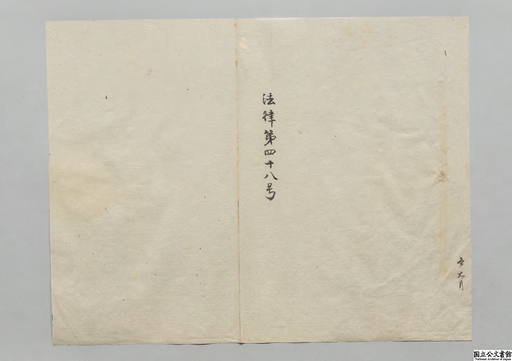 法律第四十八号
国立公文書館
National Archives of Japan